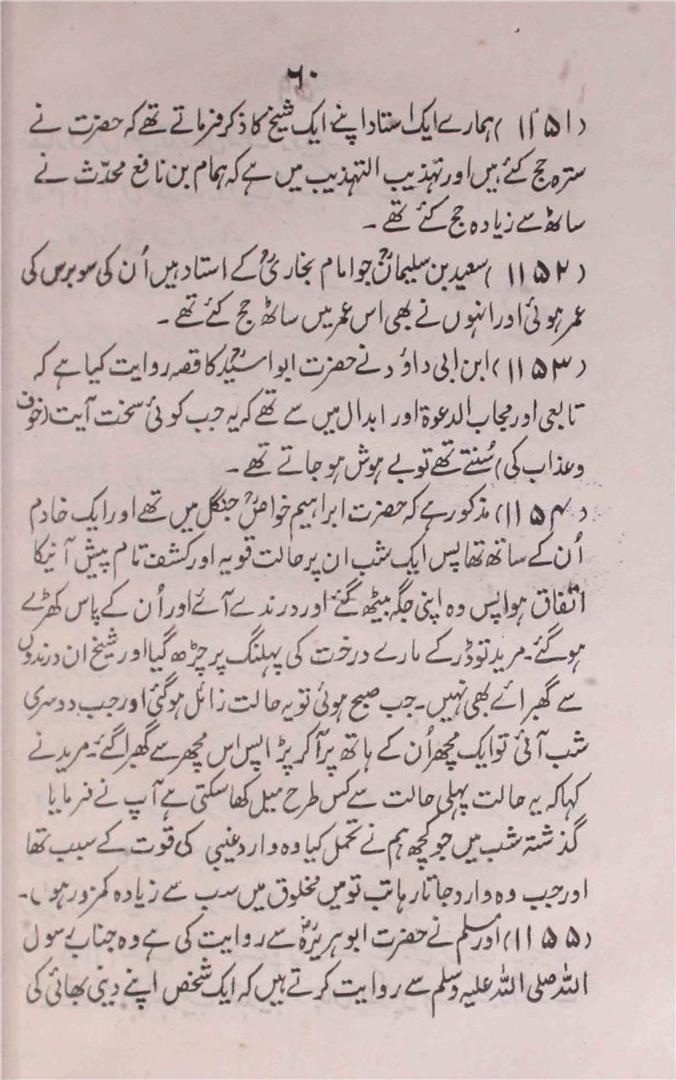 ۶۰
(۱۱۵۱) ہمارے ایک استاد اپنے ایک شیخ کا ذکر فرماتے تھے کہ حضرت نے
سترہ حج کئے ہیں اور تہذیب التہذیب میں ہے کہ ہمام بن نافع محدّث نے
ساٹھ سے زیادہ حج کئے تھے ۔
(۱۱۵۲) سعید بن سلیمانؒ جو امام بخاریؒ کے استاد ہیں اُن کی سو برس کی
عمر ہوئی اور انہوں نے بھی اس عمر میں ساٹھ حج کئے تھے ۔
(۱۱۵۳) ابن ابی داؤد نے حضرت ابو اسیدؒ کا قصہ روایت کیا ہے کہ
تابعی اور مجاب الدعوۃ اور ابدال میں سے تھے کہ یہ جب کوئی سخت آیت (خوف
وعذاب کی) سُنتے تھے تو بے ہوش ہو جاتے تھے ۔
(۱۱۵۴) مذکور ہے کہ حضرت ابراہیم خواصؒ جنگل میں تھے اور ایک خادم
اُن کے ساتھ تھا پس ایک شب ان پر حالت قویہ اور کشف تام پیش آنیکا
اتفاق ہوا پس وہ اپنی جگہ بیٹھ گئے اور درندے آئے اور اُن کے پاس کھڑے
ہو گئے۔ مرید تو ڈر کے مارے درخت کی پہلنگ پر چڑھ گیا اور شیخ ان درندوں
سے گھبرائے بھی نہیں۔ جب صبح ہوئی تو یہ حالت زائل ہو گئی اور جب دوسری
شب آئی تو ایک مچھر اُن کے ہاتھ پر آ کر پڑا پس اس مچھر سے گھبرا گئے۔ مرید نے
کہا کہ یہ حالت پہلی حالت سے کس طرح میل کھا سکتی ہے آپ نے فرمایا
گذشتہ شب میں جو کچھ ہم نے تحمل کیا وہ وارد غیبی کی قوت کے سبب تھا
اور جب وہ وارد جاتا رہا تب تو میں مخلوق میں سب سے زیادہ کمزور ہوں۔
(۱۱۵۵) اور مسلم نے حضرت ابو ہریرہؓ سے روایت کی ہے وہ جناب رسول
اللہ صلی اللہ علیہ وسلم سے روایت کرتے ہیں کہ ایک شخص اپنے دینی بھائی کی